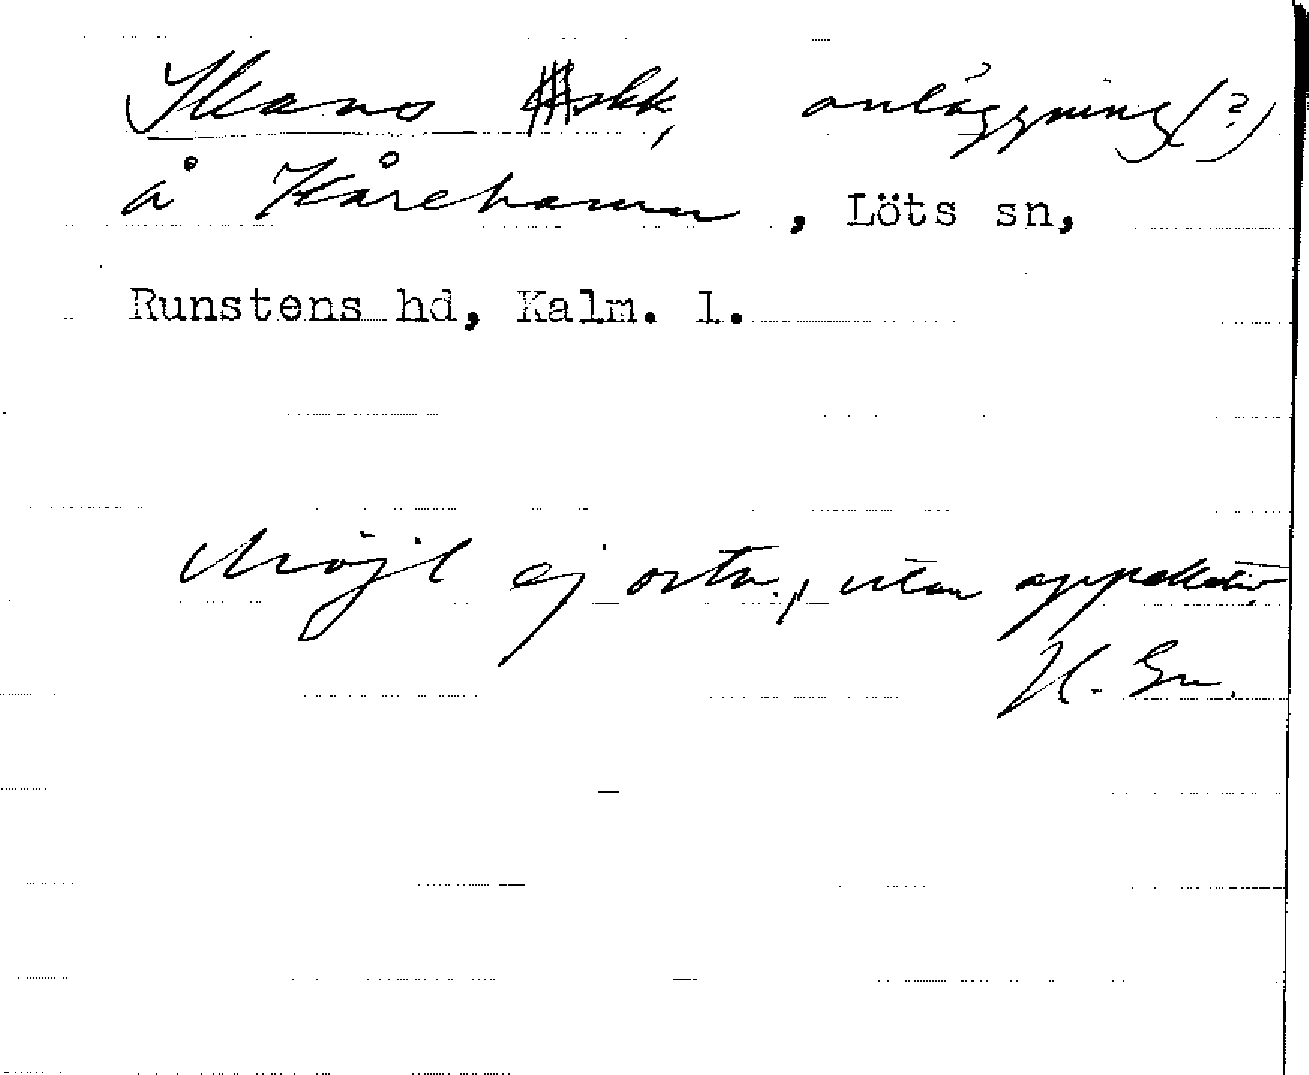 skk, anläggning(?)
å Kårehamn, Löts sn,
Runstens hd, Kalm. l.
Möjl ej ortn., utan appellativ
H. Gn.